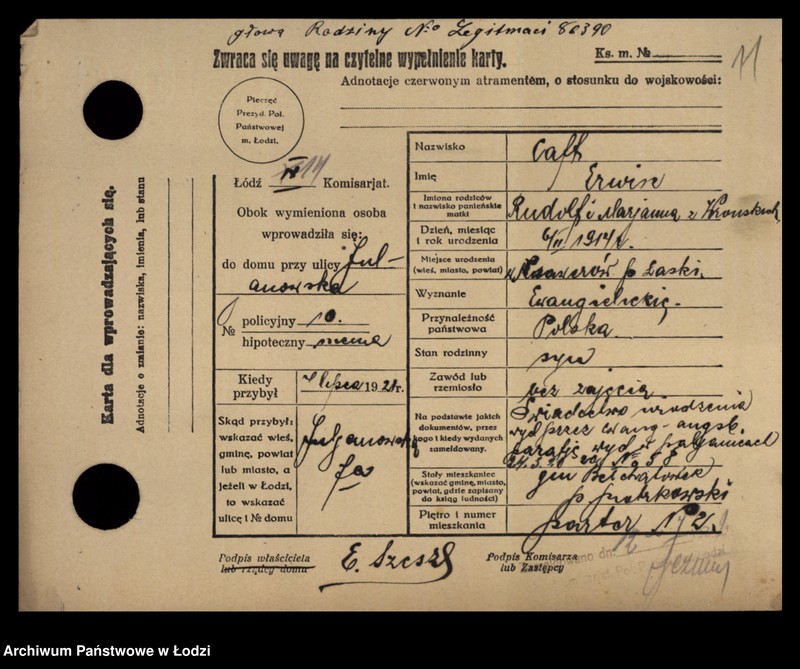 głowa Rodziny No Legitmaci 80390
Zwraca się uwagę na czytelne wypełnienie karty.
Ks. m. №
11
Adnotacje czerwonym atramentem, o stosunku do wojskowości:
Pieczęć
Prezyd. Pol.
Państwowej
m. Łodzi.
Karta dla wprowadzających się.
Adnotacje o zmianie: nazwiska, imienia, lub stanu
Łódź 14 Komisarjat.
Obok wymieniona osoba
wprowadziła się:
do domu przy ulicy Jul-
anowska
№ policyjny 10.
hipoteczny niema
Kiedy
przybył
lipca 1921r.
Skąd przybył:
wskazać wieś,
gminę, powiat
lub miasto, a
jeżeli w Łodzi,
to wskazać
ulicę i № domu
Nazwisko
Imię Erwin
Imiona rodziców
i nazwisko panieńskie
matki
Rudolf i Marjanna z
Dzień, miesiąc
i rok urodzenia
6/II 1914 r.
Miejsce urodzenia
(wieś, miasto, powiat)
w Ksawerów p Łaski.
Wyznanie Ewangielickie.
Przynależność
państwowa
Polska
Stan rodzinny syn
Zawód lub
rzemiosło
bez zajęcia
Na podstawie jakich
dokumentów, przez
kogo i kiedy wydanych
zameldowany.
Świadectwo urodzenia
wyd przez ewang-augsb.
parafję wyd w pabjanicach
№ 958
Stały mieszkaniec
(wskazać gminę, miasto,
powiat, gdzie zapisany
do ksiąg ludności)
gm Bełchatówek
p piotrkowski
Piętro i numer
mieszkania
parter № 2.
Podpis właściciela
lub rządcy domu
Podpis Komisarza
lub Zastępcy
Archiwum Państwowe w Łodzi